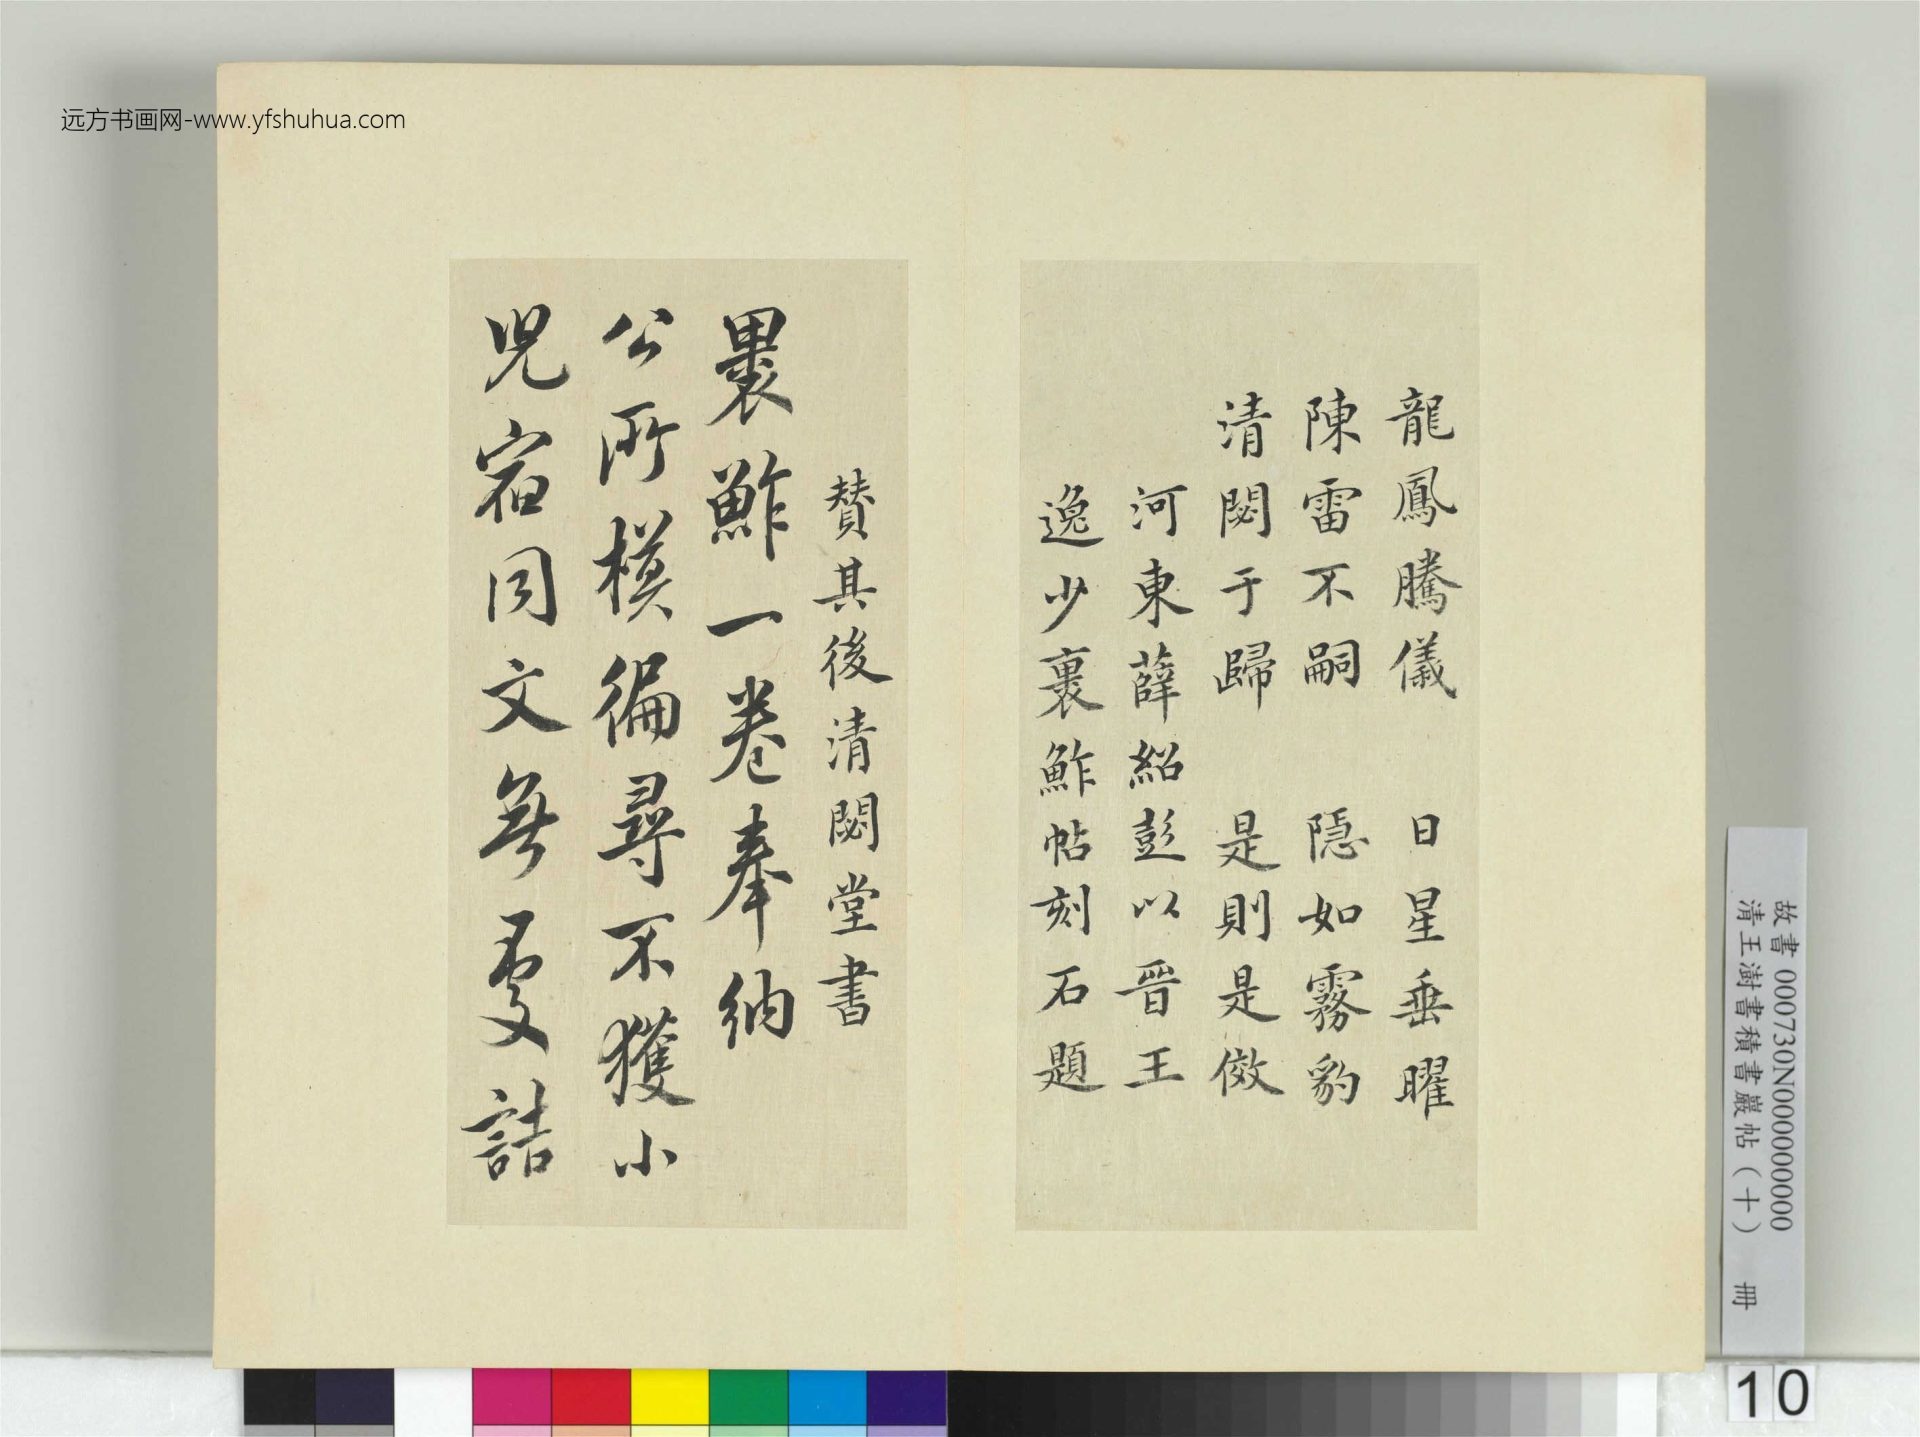 远方书画网-www.yfshuhua.com
龍鳳騰儀 日星垂曜
陳雷不嗣 隠如霧豹
清閟于歸 是則是傚
河東薛紹彭以晉王
逸少裹鮓帖刻石題
賛其後清閟堂書
裹鮓一卷奉納
公所模徧尋不獲小
児宿同文無𠮓詰
故書 000730N000000000
清王澍書積書巖帖（十） 冊
10